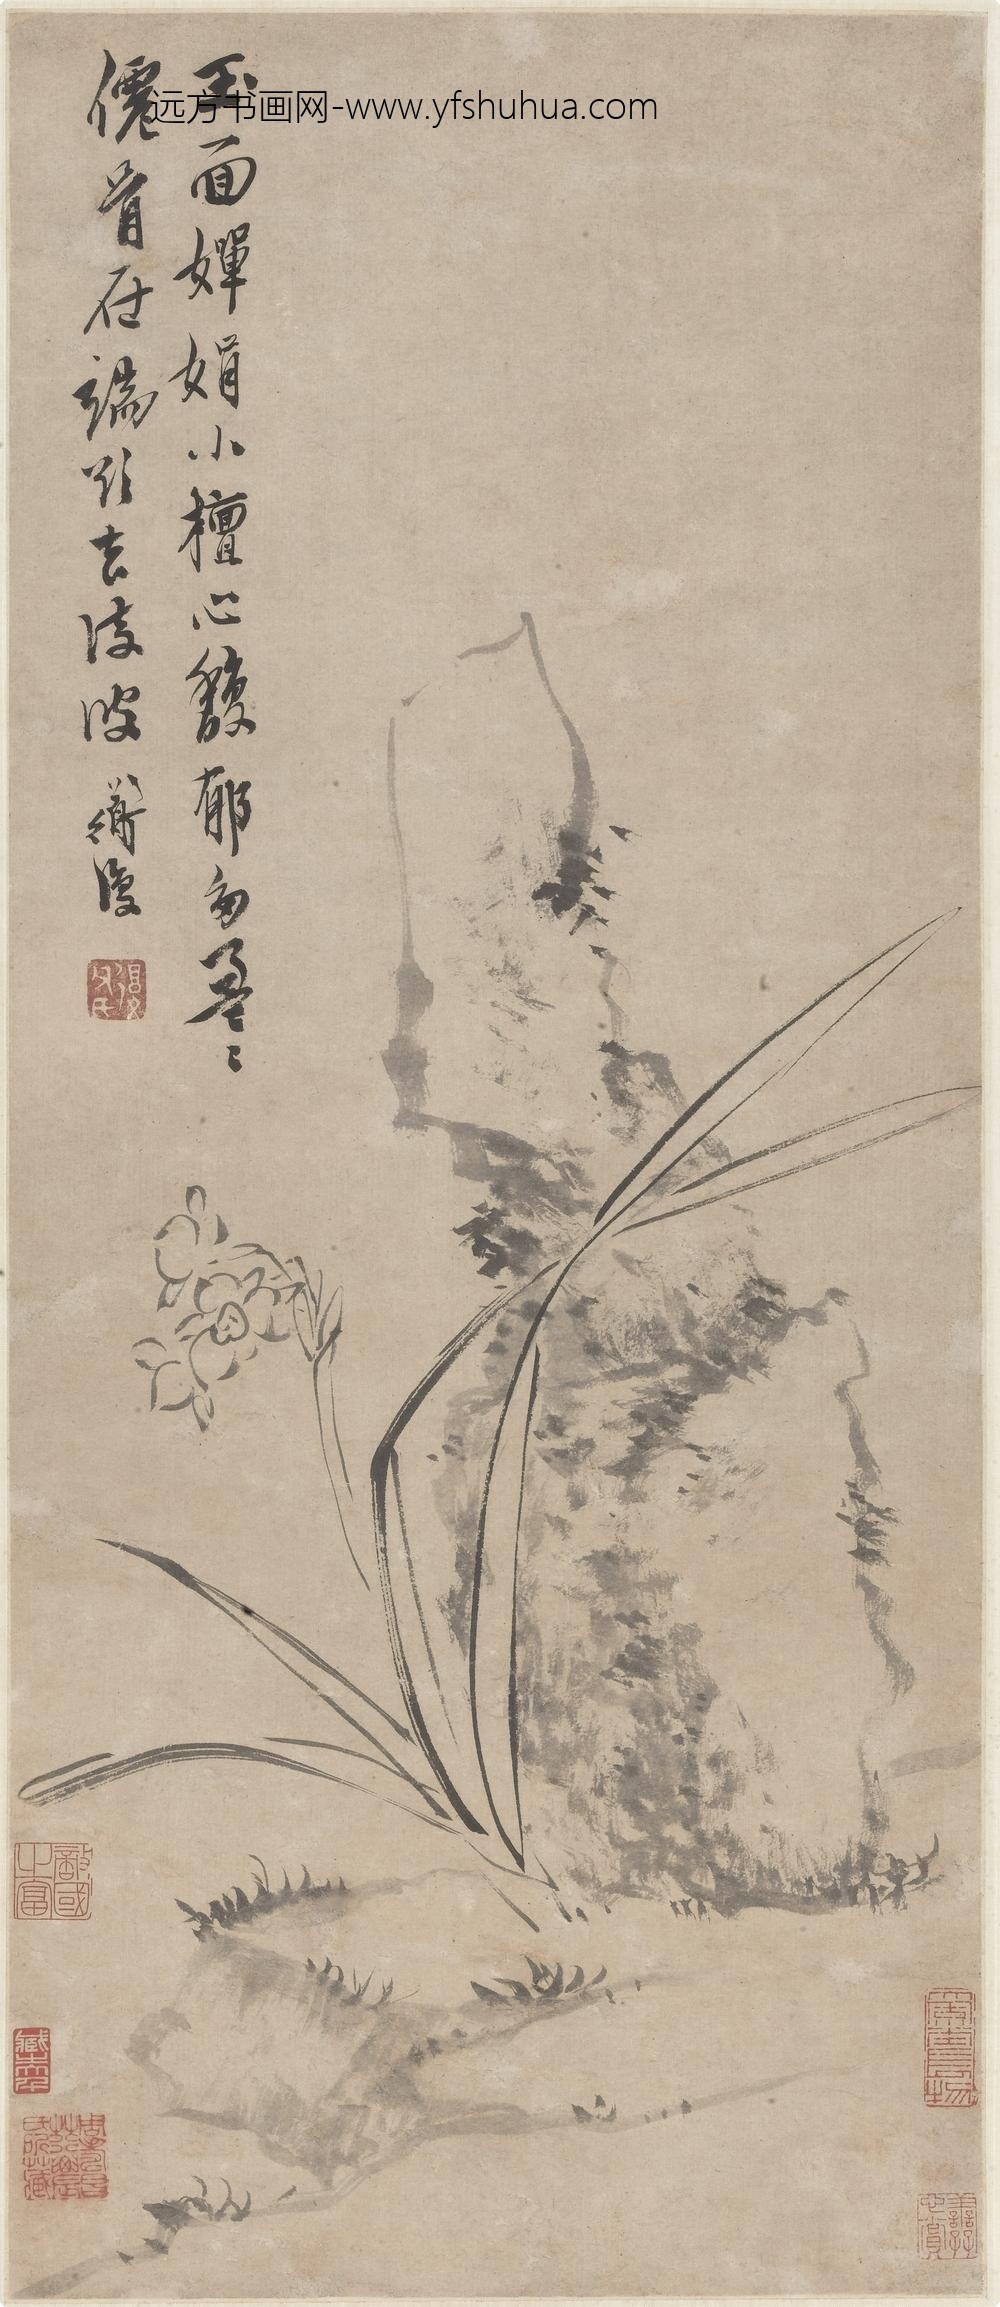 远方书画网-www.yfshuhua.com
玉面嬋娟小檀心馥郁多盈〻
僊骨在端欲去凌波